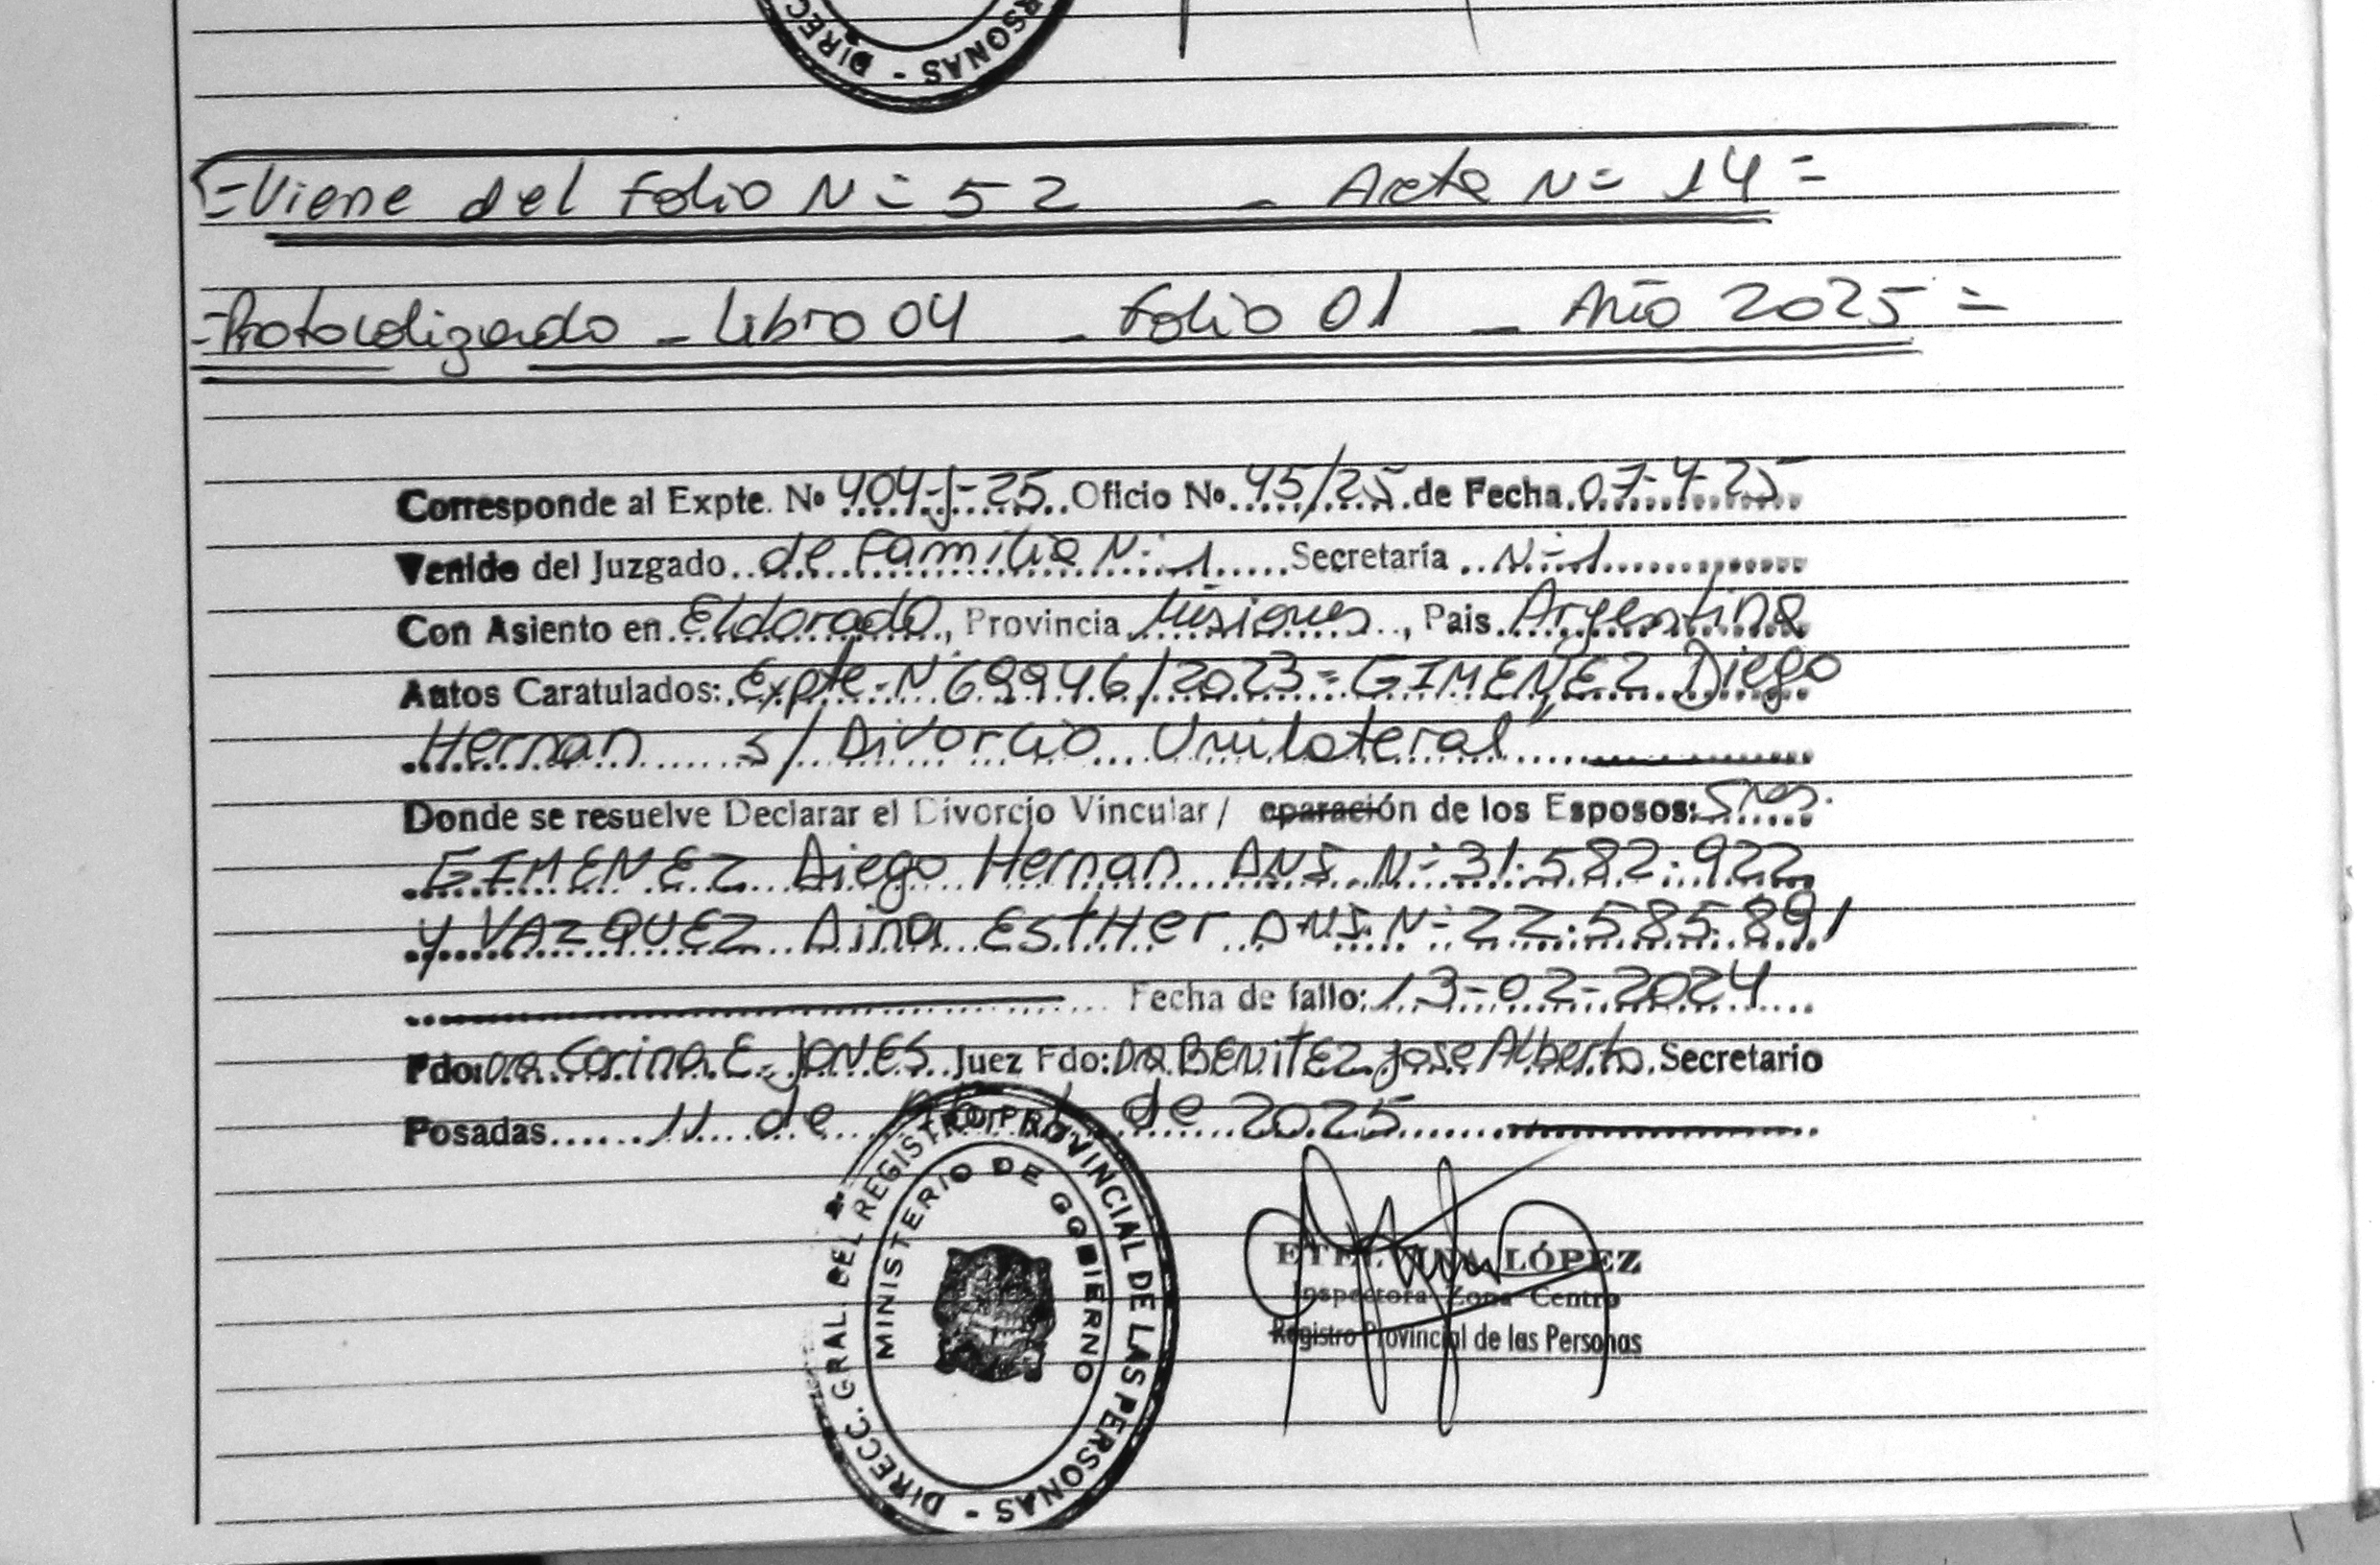 DIRECC
PERSONAS -
=Viene del Folio N= 52 - Acta N= 14=
=Protocolizado - Libro 04 - Folio 01 - Año 2025=
Corresponde al Expte. Nº 404-J-25 Oficio Nº 45/25 de Fecha 07-4-25
Venido del Juzgado de Familia N=1 Secretaría N=1
Con Asiento en Eldorado, Provincia Misiones, Pais Argentina
Autos Caratulados: Expte-Nº69946/2023=GIMENEZ Diego
Hernan s/ Divorcio Unilateral"
Donde se resuelve Declarar el Divorcio Vincular / eparación de los Esposos: Sres.
GIMENEZ Diego Hernan DNI. N=31.582.922
y VAZQUEZ Dina EstHer DNI. N=22.585.891
Fecha de fallo: 13-02-2024
Fdo: Dra Corina E. JONES Juez Fdo: BENITEZ Jose Alberto Secretario
Posadas 11 de de 2025
DIRECC. GRAL. DEL REGISTRO PROVINCIAL DE LAS PERSONAS -
MINISTERIO DE GOBIERNO
LÓPEZ
Inspectora Zona Centro
Registro Provincial de las Personas